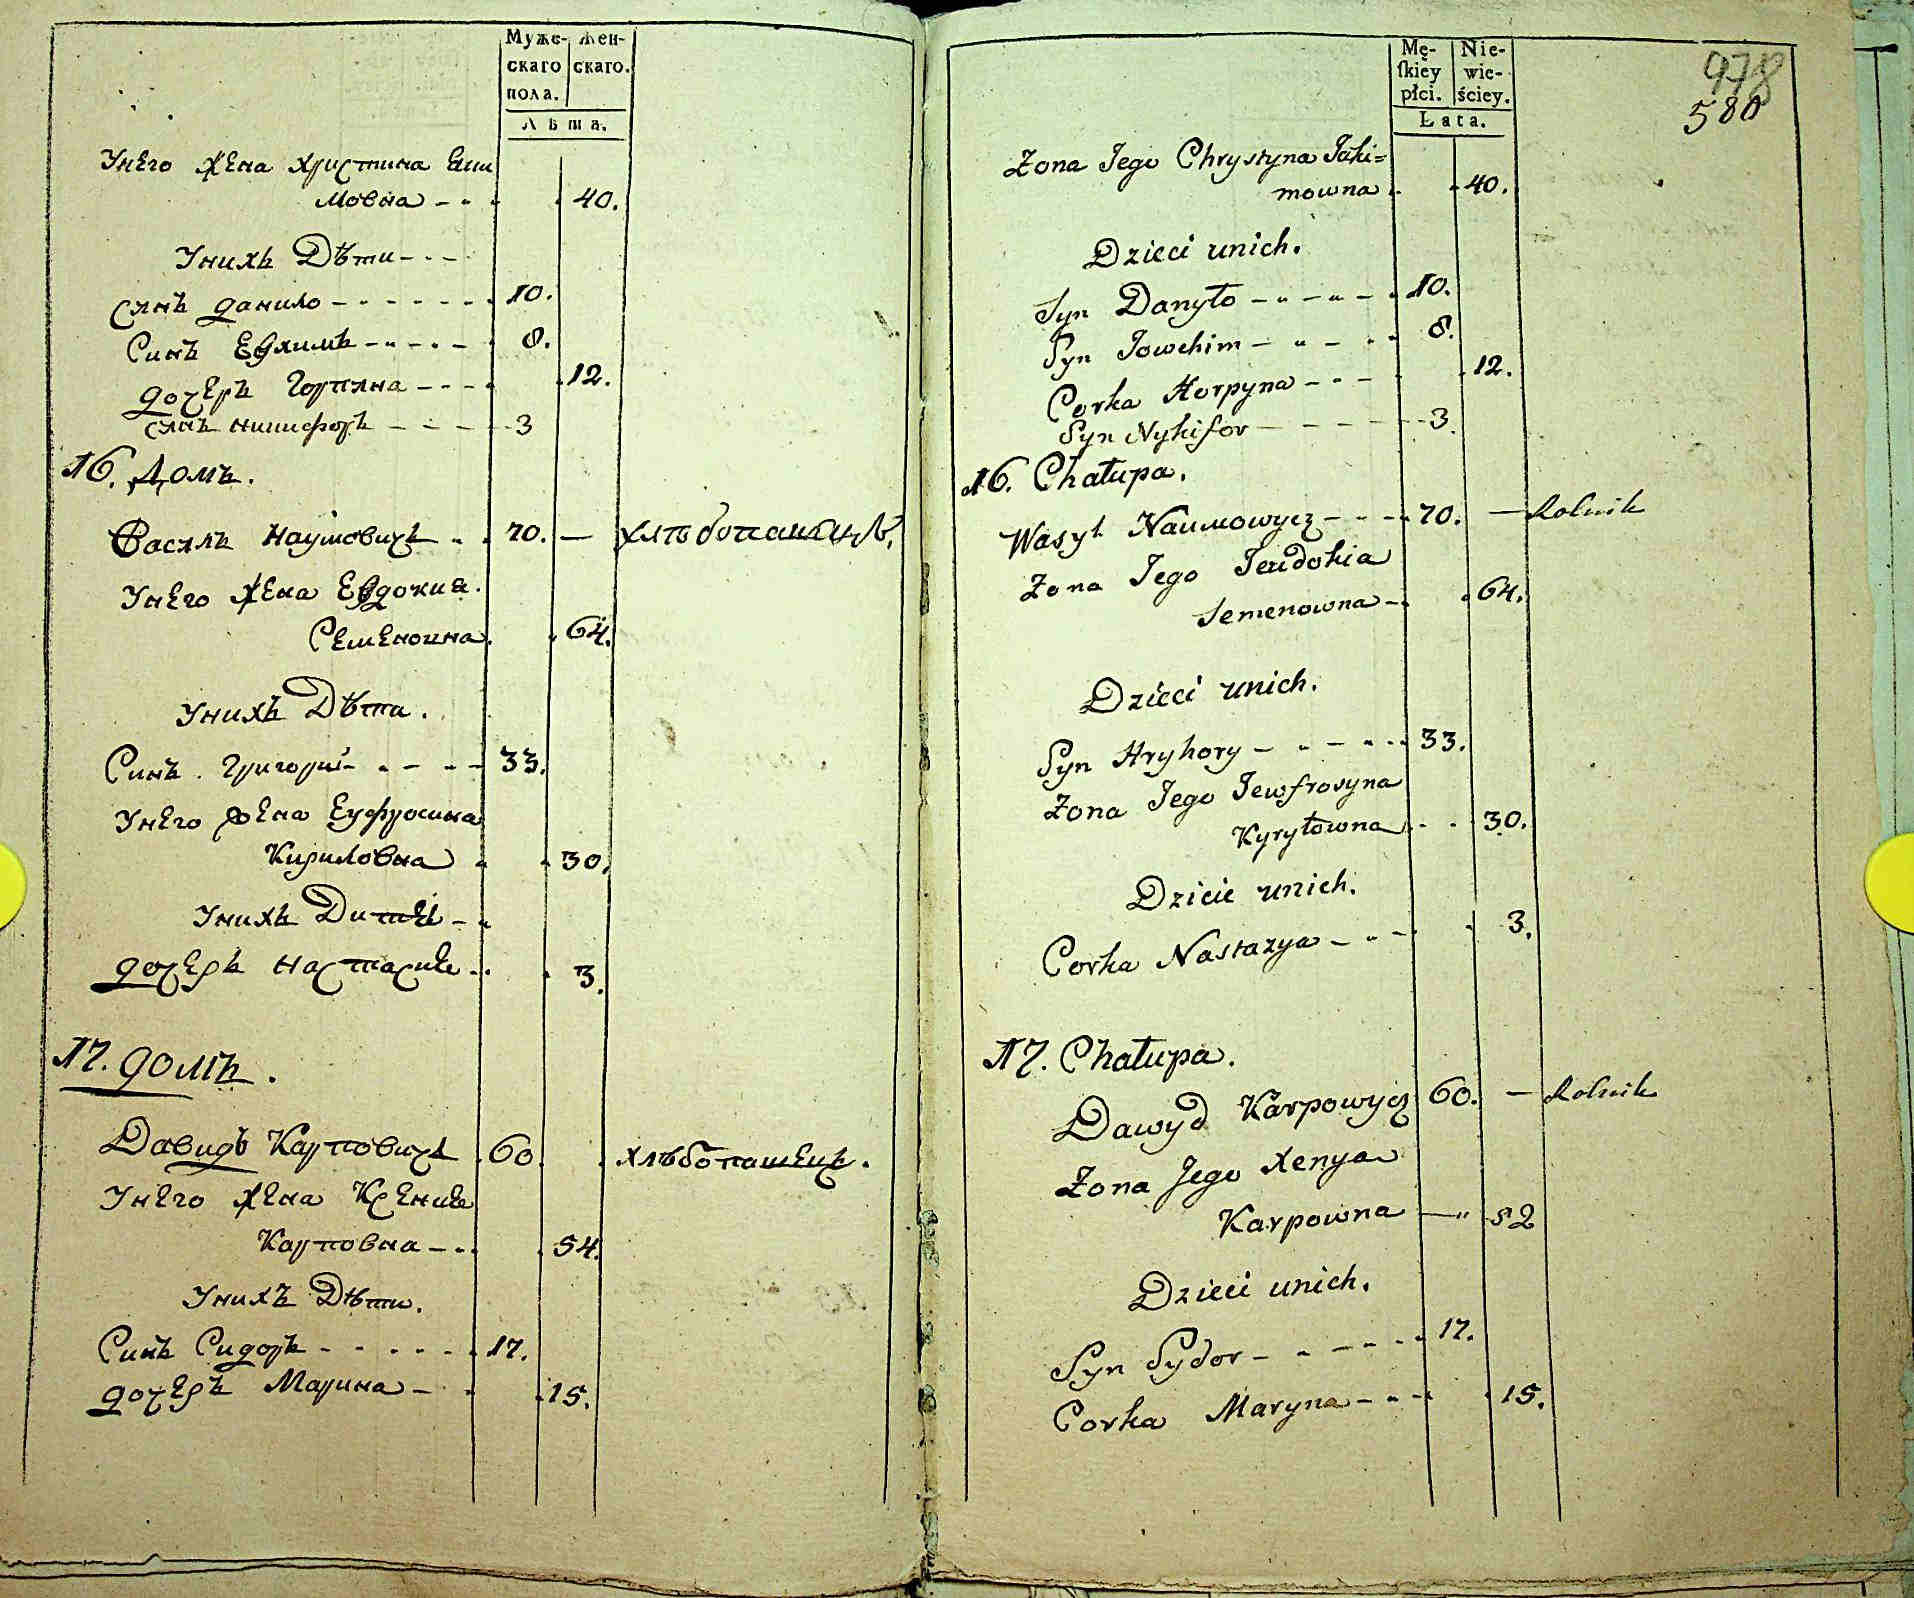 Муже-
скаго
пола.
жен-
скаго.
Лѣта.
Унего жена Христина Еки
мовна
40.
Унихъ Дѣти
Сынъ Данило
10.
Синъ Евхимъ
8.
дочеръ Горпына
12.
Сынъ Никифоръ
3
16. Домъ.
Василь Наумовичъ
70.
—
Унего жена Евдокия.
Семеноина.
64.
Унихъ Дѣти.
Синъ Григорий
33.
Унего жена Еуфросина
Кириловна
30.
Унихъ
дочеръ Настасия
3.
17. домъ.
Давидъ Карповичъ
60
хлѣбопашецъ.
Унего жена Ксения
Карповна
54.
Унихъ Дѣти.
Синъ Сидоръ
17.
дочеръ Марина
15.
Mę-
ſkiey
płci.
Nie-
wie-
ściey.
Lata.
978
580
Żona Jego Chrystyna Jaki=
mowna
40.
Dzieci unich.
Syn Danyło
10.
Syn Jowchim
8.
Corka Horpyna
12.
Syn Nykifor
3.
16. Chałupa.
Wasyl Naumowycz
70.
— Rolnik
Żona Jego Jewdokia
Semenowna
64.
Dzieci unich.
Syn Hryhory
33.
Żona Jego Jewfrosyna
Kyryłowna
30.
Dziecie unich.
Corka Nastazya
3.
17. Chałupa.
Dawyd Karpowycz
60.
— Rolnik
Żona Jego Xenya
Karpowna
52
Dzieci unich.
Syn Sydor
17.
Corka Maryna
15.